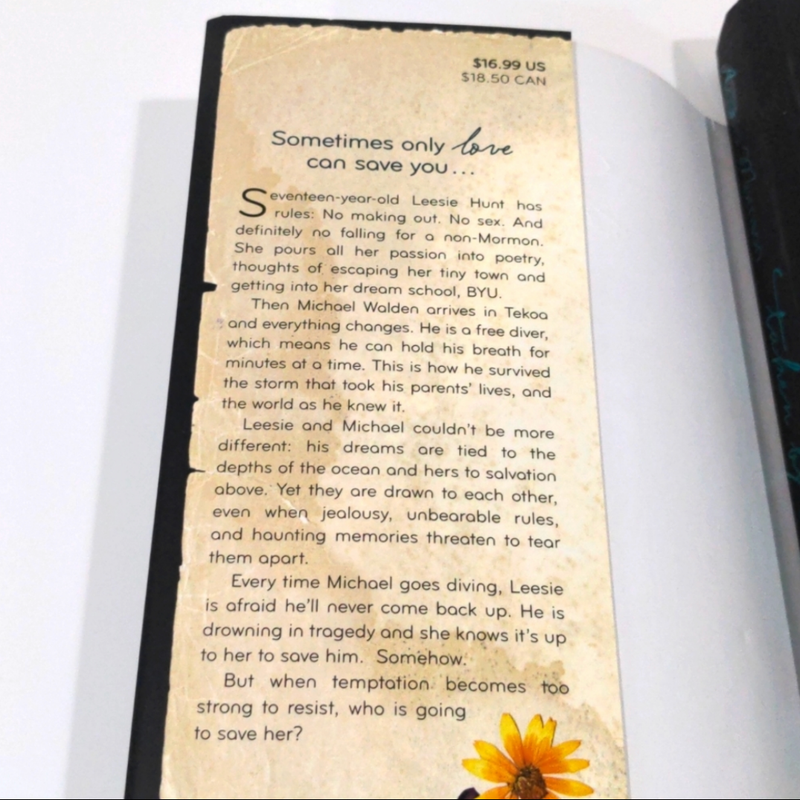 $16.99 US
$18.50 CAN
Sometimes only love
can save you...
Seventeen-year-old Leesie Hunt has
rules: No making out. No sex. And
definitely no falling for a non-Mormon.
She pours all her passion into poetry,
thoughts of escaping her tiny town and
getting into her dream school, BYU.
Then Michael Walden arrives in Tekoa
and everything changes. He is a free diver,
which means he can hold his breath for
minutes at a time. This is how he survived
the storm that took his parents' lives, and
the world as he knew it.
Leesie and Michael couldn't be more
different: his dreams are tied to the
depths of the ocean and hers to salvation
above. Yet they are drawn to each other,
even when jealousy, unbearable rules,
and haunting memories threaten to tear
them apart.
Every time Michael goes diving, Leesie
is afraid he'll never come back up. He is
drowning in tragedy and she knows it's up
to her to save him. Somehow.
But when temptation becomes too
strong to resist, who is going
to save her?